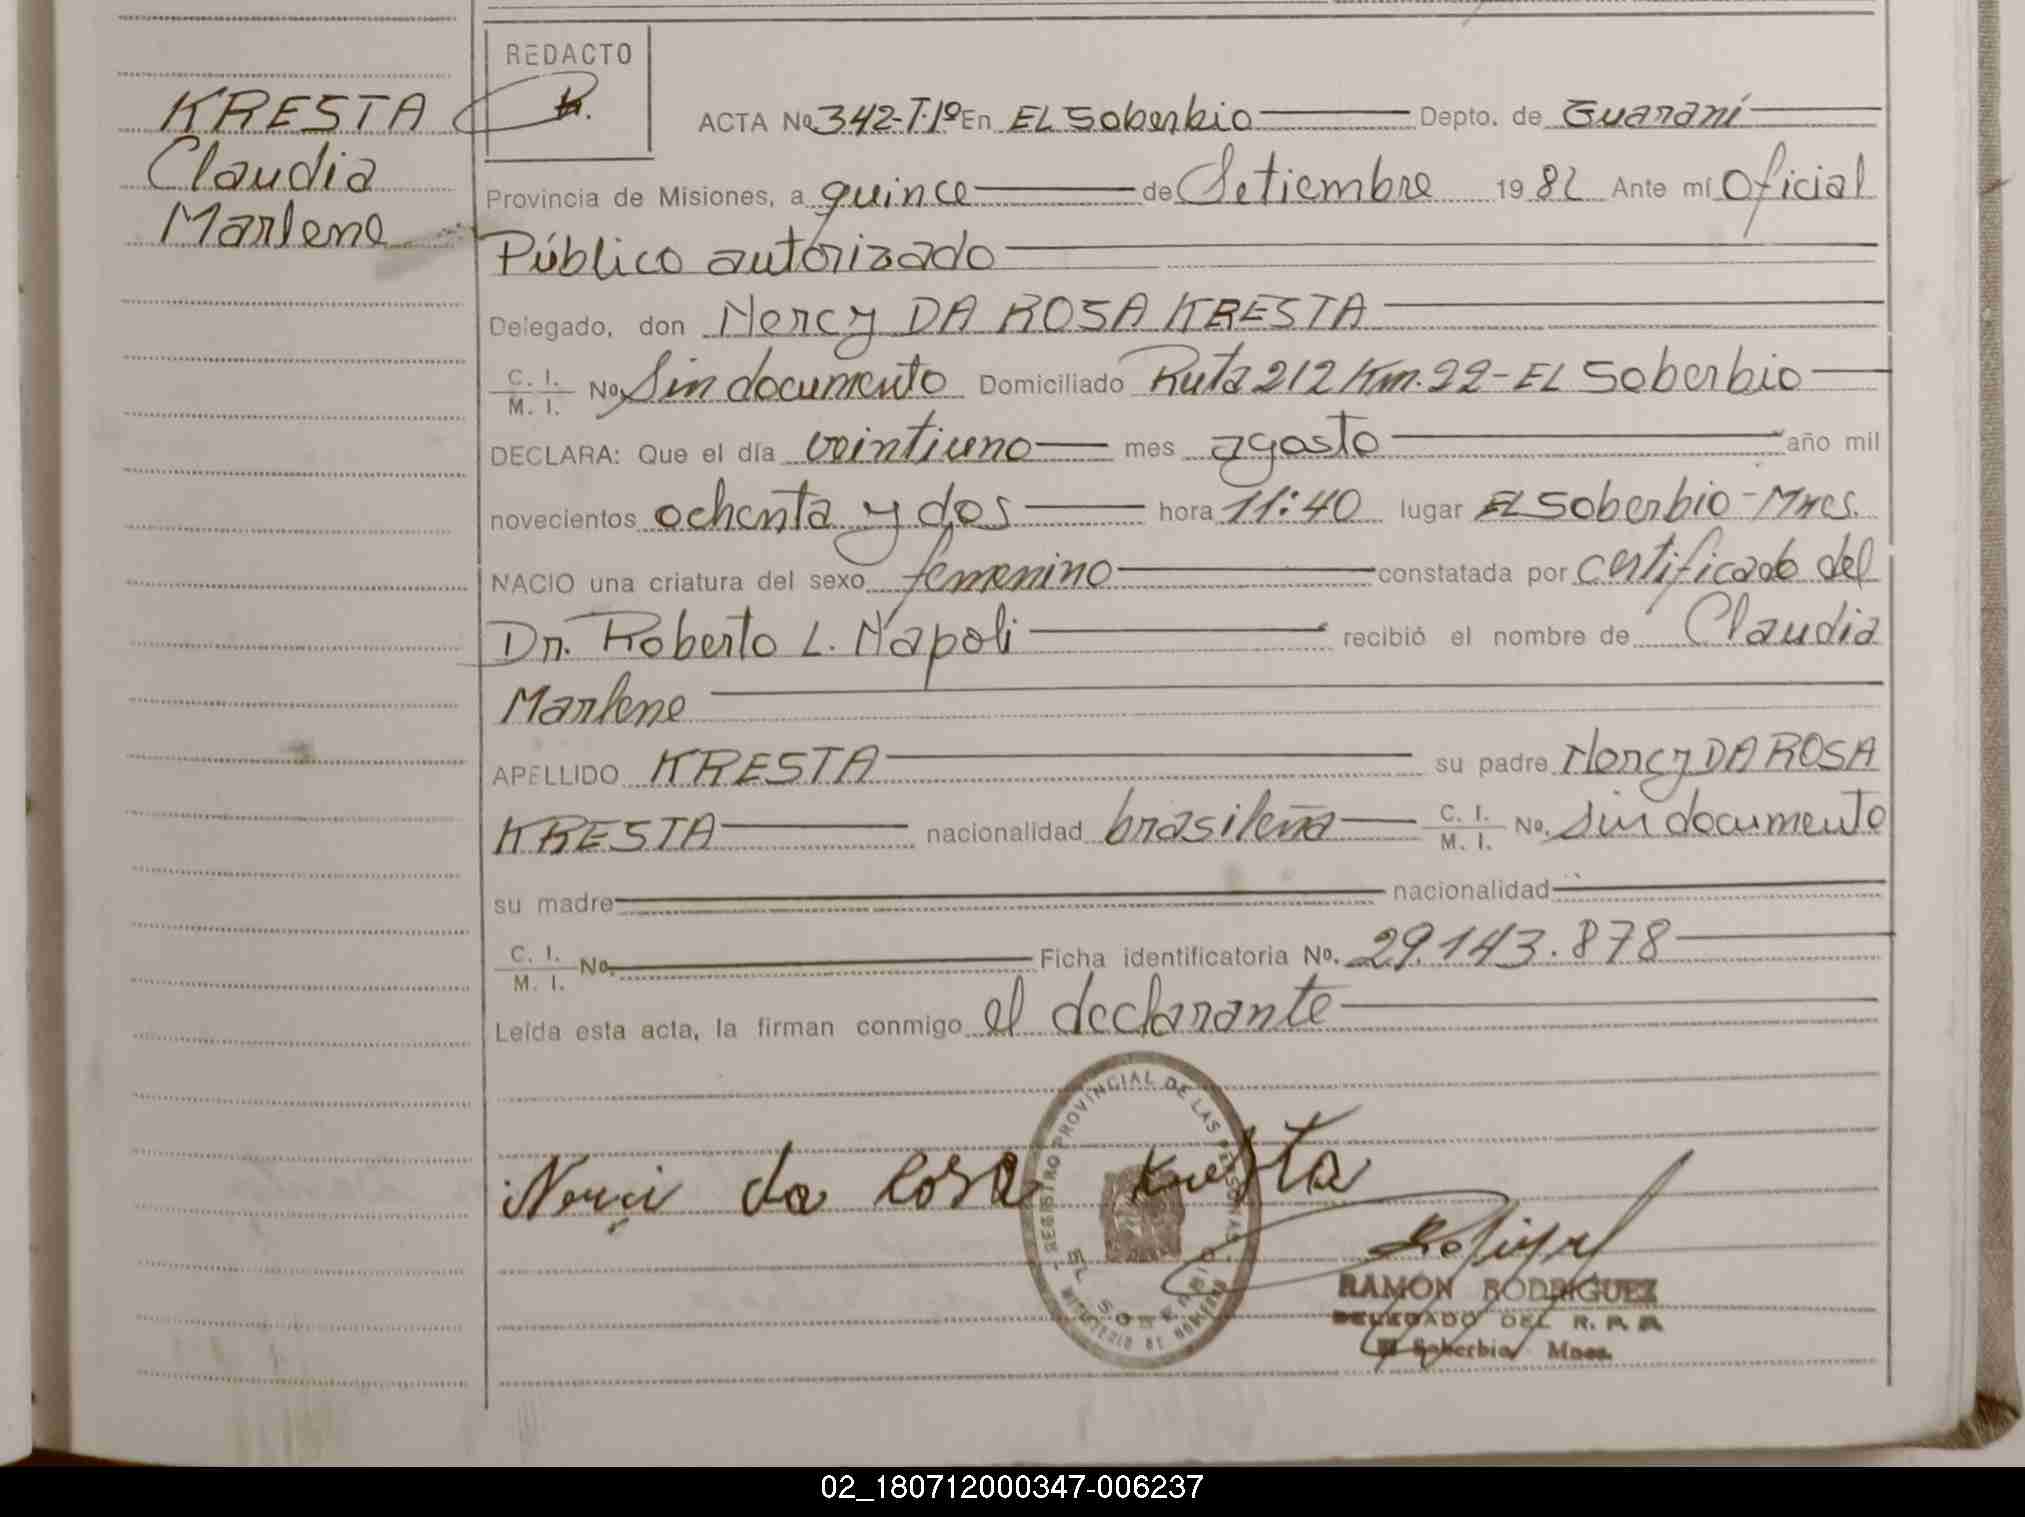 KRESTA
Claudia
Marlene
REDACTO
ACTA No 342-T.1º En EL Soberbio Depto. de Guaraní
Provincia de Misiones, a quince de Setiembre 1982 Ante mí Oficial
Público autorizado
Delegado, don Nercy DA ROSA KRESTA
C. I.
M. I. No. Sin documento Domiciliado Ruta 212 Km. 22 - EL Soberbio
DECLARA: Que el día veintiuno mes agosto año mil
novecientos ochenta y dos hora 11:40 lugar EL Soberbio - Mnes.
NACIO una criatura del sexo femenino constatada por certificado del
Dr. Roberto L. Napoli recibió el nombre de Claudia
Marlene
APELLIDO KRESTA su padre Nercy DA ROSA
KRESTA nacionalidad brasileña C. I.
M. I. No. Sin documento
su madre nacionalidad
C. I.
M. I. No. Ficha identificatoria No. 29.143.878
Leída esta acta, la firman conmigo el declarante
REGISTRO PROVINCIAL DE LAS PERSONAS
EL SOBERBIO
MINISTERIO DE GOBIERNO
Nerci da Rosa Kresta
RAMÓN RODRIGUEZ
DELEGADO DEL R. P. P.
El Soberbio Mnes.
02_180712000347-006237